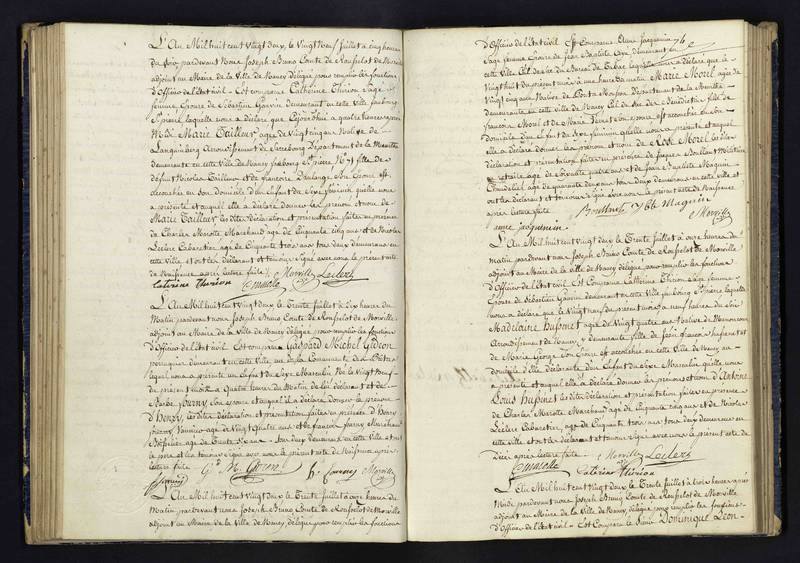 L'An Mil huit cent Vingt deux, le Vingt Neuf Juillet à cinq heures
du soir pardevant Nous Joseph Bruno Comte de Ronfselot de Morville
adjoint au Maire de la Ville de Nancy délégué pour remplir les fonctions
d'Officier de l'Etat civil. Est comparue Catherine Thirion Sage
femme Epouse de Sébastien Gauvin demeurant en cette Ville faubourg
St pierre, laquelle nous a déclaré que aujourd'hui à quatre heures après
Midi Marie Tailleur agée de Vingt cinq ans Native de
Languimberg Arrondissement de Sarrebourg Département de la Meurthe
demeurante en cette Ville de Nancy faubourg St pierre No 71 fille de
défunt Nicolas Tailleur et de francoise Son Epouse est
accouchée en son domicile d'un Enfant du Sexe féminin qu'elle nous
a présenté et auquel elle a déclaré donner le prénom et nom de
Marie Tailleur les dites déclaration et présentation faites en présence
de Charles Marotte Marchand agé de Cinquante cinq ans et de Nicolas
Leclerc Cabaretier agé de Cinquante trois ans tous deux demeurans en
cette Ville et ont les déclarant et témoins Signé avec nous le présent acte
de Naissance après lecture faite
Caterine thirion Morville Leclerc
L'An Mil huit cent Vingt deux le Trente Juillet à dix heures du
Matin pardevant nous Joseph Bruno Comte de Ronfselot de Morville
adjoint au Maire de la Ville de Nancy délégué pour remplir les fonctions
d'Officier de l'Etat civil. Est comparu Gaspard Michel Gidéon
perruquier demeurant en cette Ville
lequel nous a présenté un Enfant du Sexe Masculin Né le Vingt Neuf
du présent mois à Quatre heures du Matin de lui déclarant et de
Barbe Son épouse et auquel il a déclaré donner le prénom
d'Henry, les dites déclaration et présentation faites en présence d'Henry
agé de Vingt quatre ans et de francois Marchand
agé de Tous deux demeurans en cette Ville et ont
le père et les témoins Signé avec nous le présent acte de Naissance après
lecture faite
G. M. Gideon Morville
L'An Mil huit cent Vingt deux le Trente Juillet à onze heures du
Matin pardevant nous Joseph Bruno Comte de Ronfselot de Morville
adjoint au Maire de la Ville de Nancy délégué pour remplir les fonctions
76
d'Officier de l'Etat civil Est Comparue Anne Jacquemin
Sage femme Epouse de Jean Baptiste demeurant en
cette Ville laquelle nous a déclaré que le
Vingt huit du présent mois à une heure du matin Marie Morel agée de
Vingt cinq ans Native de Pont à Mousson Département de la Meurthe
demeurante en cette Ville de Nancy fille de
francois Morel et de Marie Son épouse est accouchée en son
domicile d'un Enfant du Sexe féminin qu'elle nous a présenté et auquel
elle a déclaré donner les prénom et nom de Rose Morel les dites
déclaration et présentation faites en présence de Jacques Boullant Militaire
en retraite agé de Soixante ans et de Jean Baptiste Maguin
agé de quarante ans tous deux demeurans en cette Ville et
ont les déclarant et témoins Signé avec nous le présent acte de Naissance
après lecture faite
Boullant JB Maguin
anne jacquemin Morville
L'An Mil huit cent Vingt deux le Trente Juillet à onze heures du
matin pardevant nous Joseph Bruno Comte de Ronfselot de Morville
adjoint au Maire de la Ville de Nancy délégué pour remplir les fonctions
d'Officier de l'Etat civil Est Comparue Catherine Thirion Sage femme
Epouse de Sébastien Gauvin demeurant en cette Ville faubourg St pierre laquelle
nous a déclaré que le Vingt neuf du présent mois à neuf heures du soir
Madelaine Husson agée de Vingt quatre ans Native de
Arrondissement de Nancy y demeurante fille de Jean francois Husson et
de Marie George Son Epouse est accouchée en cette Ville de Nancy au
domicile d'elle déclarante d'un Enfant du Sexe Masculin qu'elle nous
a présenté et auquel elle a déclaré donner les prénoms et nom d'Antoine
Louis Husson les dites déclaration et présentation faites en présence
de Charles Marotte Marchand agé de Cinquante cinq ans et de Nicolas
Leclerc Cabaretier, agé de Cinquante trois ans tous deux demeurans en
cette Ville et ont les déclarant et témoins Signé avec nous le présent acte de
après lecture faite
Morville Leclerc
Caterine thirion
L'An Mil huit cent Vingt deux le Trente Juillet à trois heures après
Midi pardevant nous Joseph Bruno Comte de Ronfselot de Morville
adjoint au Maire de la Ville de Nancy délégué pour remplir les fonctions
d'Officier de l'Etat civil Est Comparu le Sieur Dominique Léon